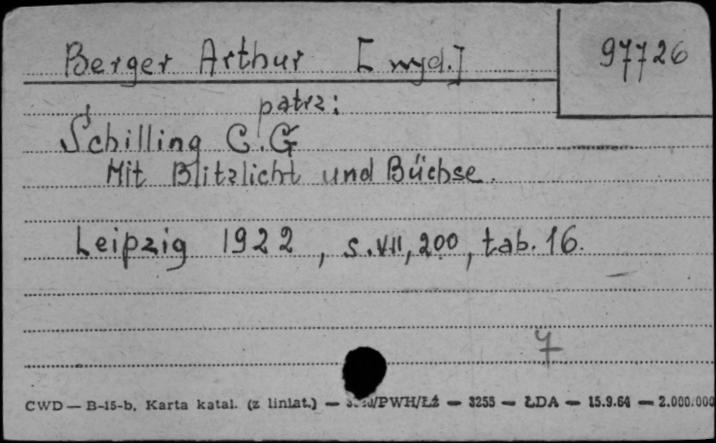 Berger Arthur [wyd.]
97726
patrz:
Schilling C.G
Mit Blitzlicht und Büchse.
Leipzig 1922, s.VII, 200, tab. 16.
7
CWD — B-15-b, Karta katal. (z liniat.) — /PWH/Łź — 3255 — ŁDA — 15.9.64 — 2.000.000